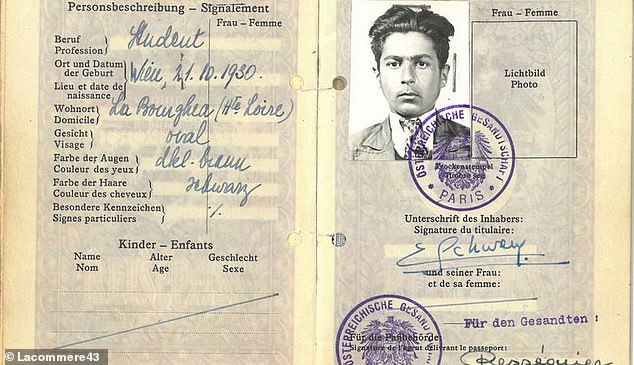 Personsbeschreibung – Signalement
Frau – Femme
Beruf
Profession
Student
Ort und Datum
der Geburt
Lieu et date de
naissance
Wien, 21.10.1930.
Wohnort
Domicile
(Hte Loire)
Gesicht
Visage
oval
Farbe der Augen
Couleur des yeux
dkl.-braun
Farbe der Haare
Couleur des cheveux
schwarz
Besondere Kennzeichen
Signes particuliers
Kinder – Enfants
Name Alter Geschlecht
Nom Age Sexe
© Lacommere43
Frau – Femme
Lichtbild
Photo
ÖSTERREICHISCHE GESANDTSCHAFT
PARIS
Unterschrift des Inhabers:
Signature du titulaire:
und seiner Frau:
et de sa femme:
ÖSTERREICHISCHE
Für den Gesandten:
Für die Paßbehörde:
Signature de l'agent délivrant le passeport: